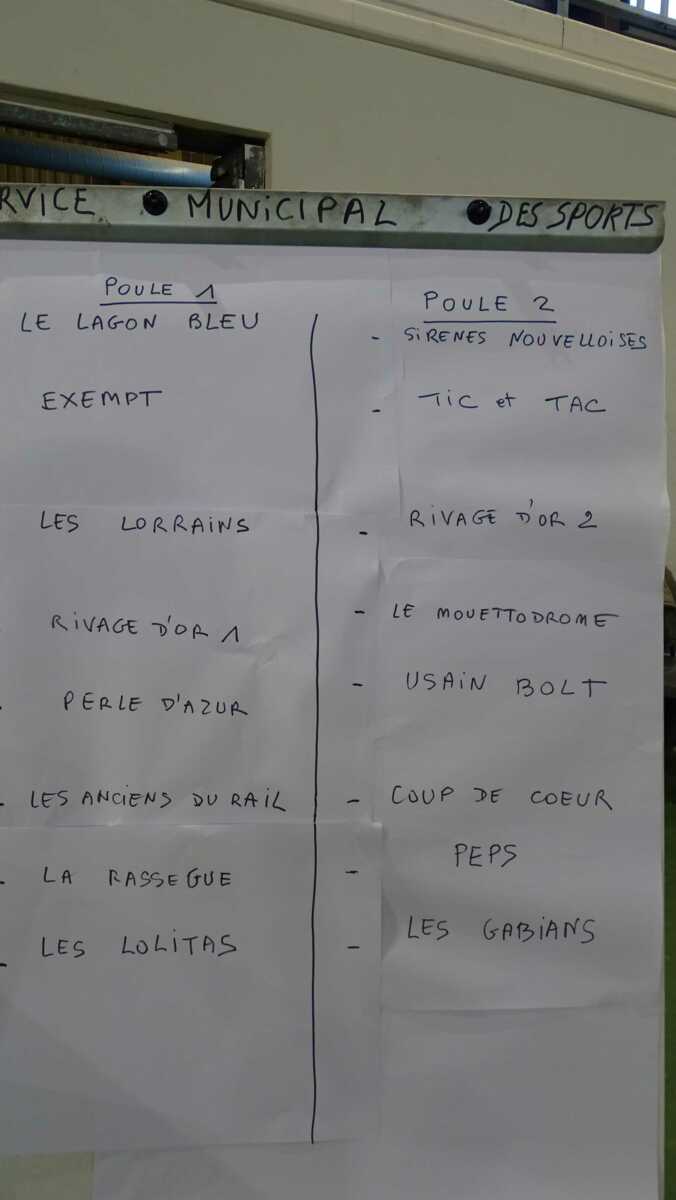 RVICE • MUNICIPAL • DES SPORTS
POULE 1
LE LAGON BLEU
EXEMPT
LES LORRAINS
RIVAGE D'OR 1
PERLE D'AZUR
- LES ANCIENS DU RAIL
- LA RASSEGUE
- LES LOLITAS
POULE 2
- SIRENES NOUVELLOISES
- TIC et TAC
- RIVAGE D'OR 2
- LE MOUETTODROME
- USAIN BOLT
- COUP DE COEUR
- PEPS
- LES GABIANS